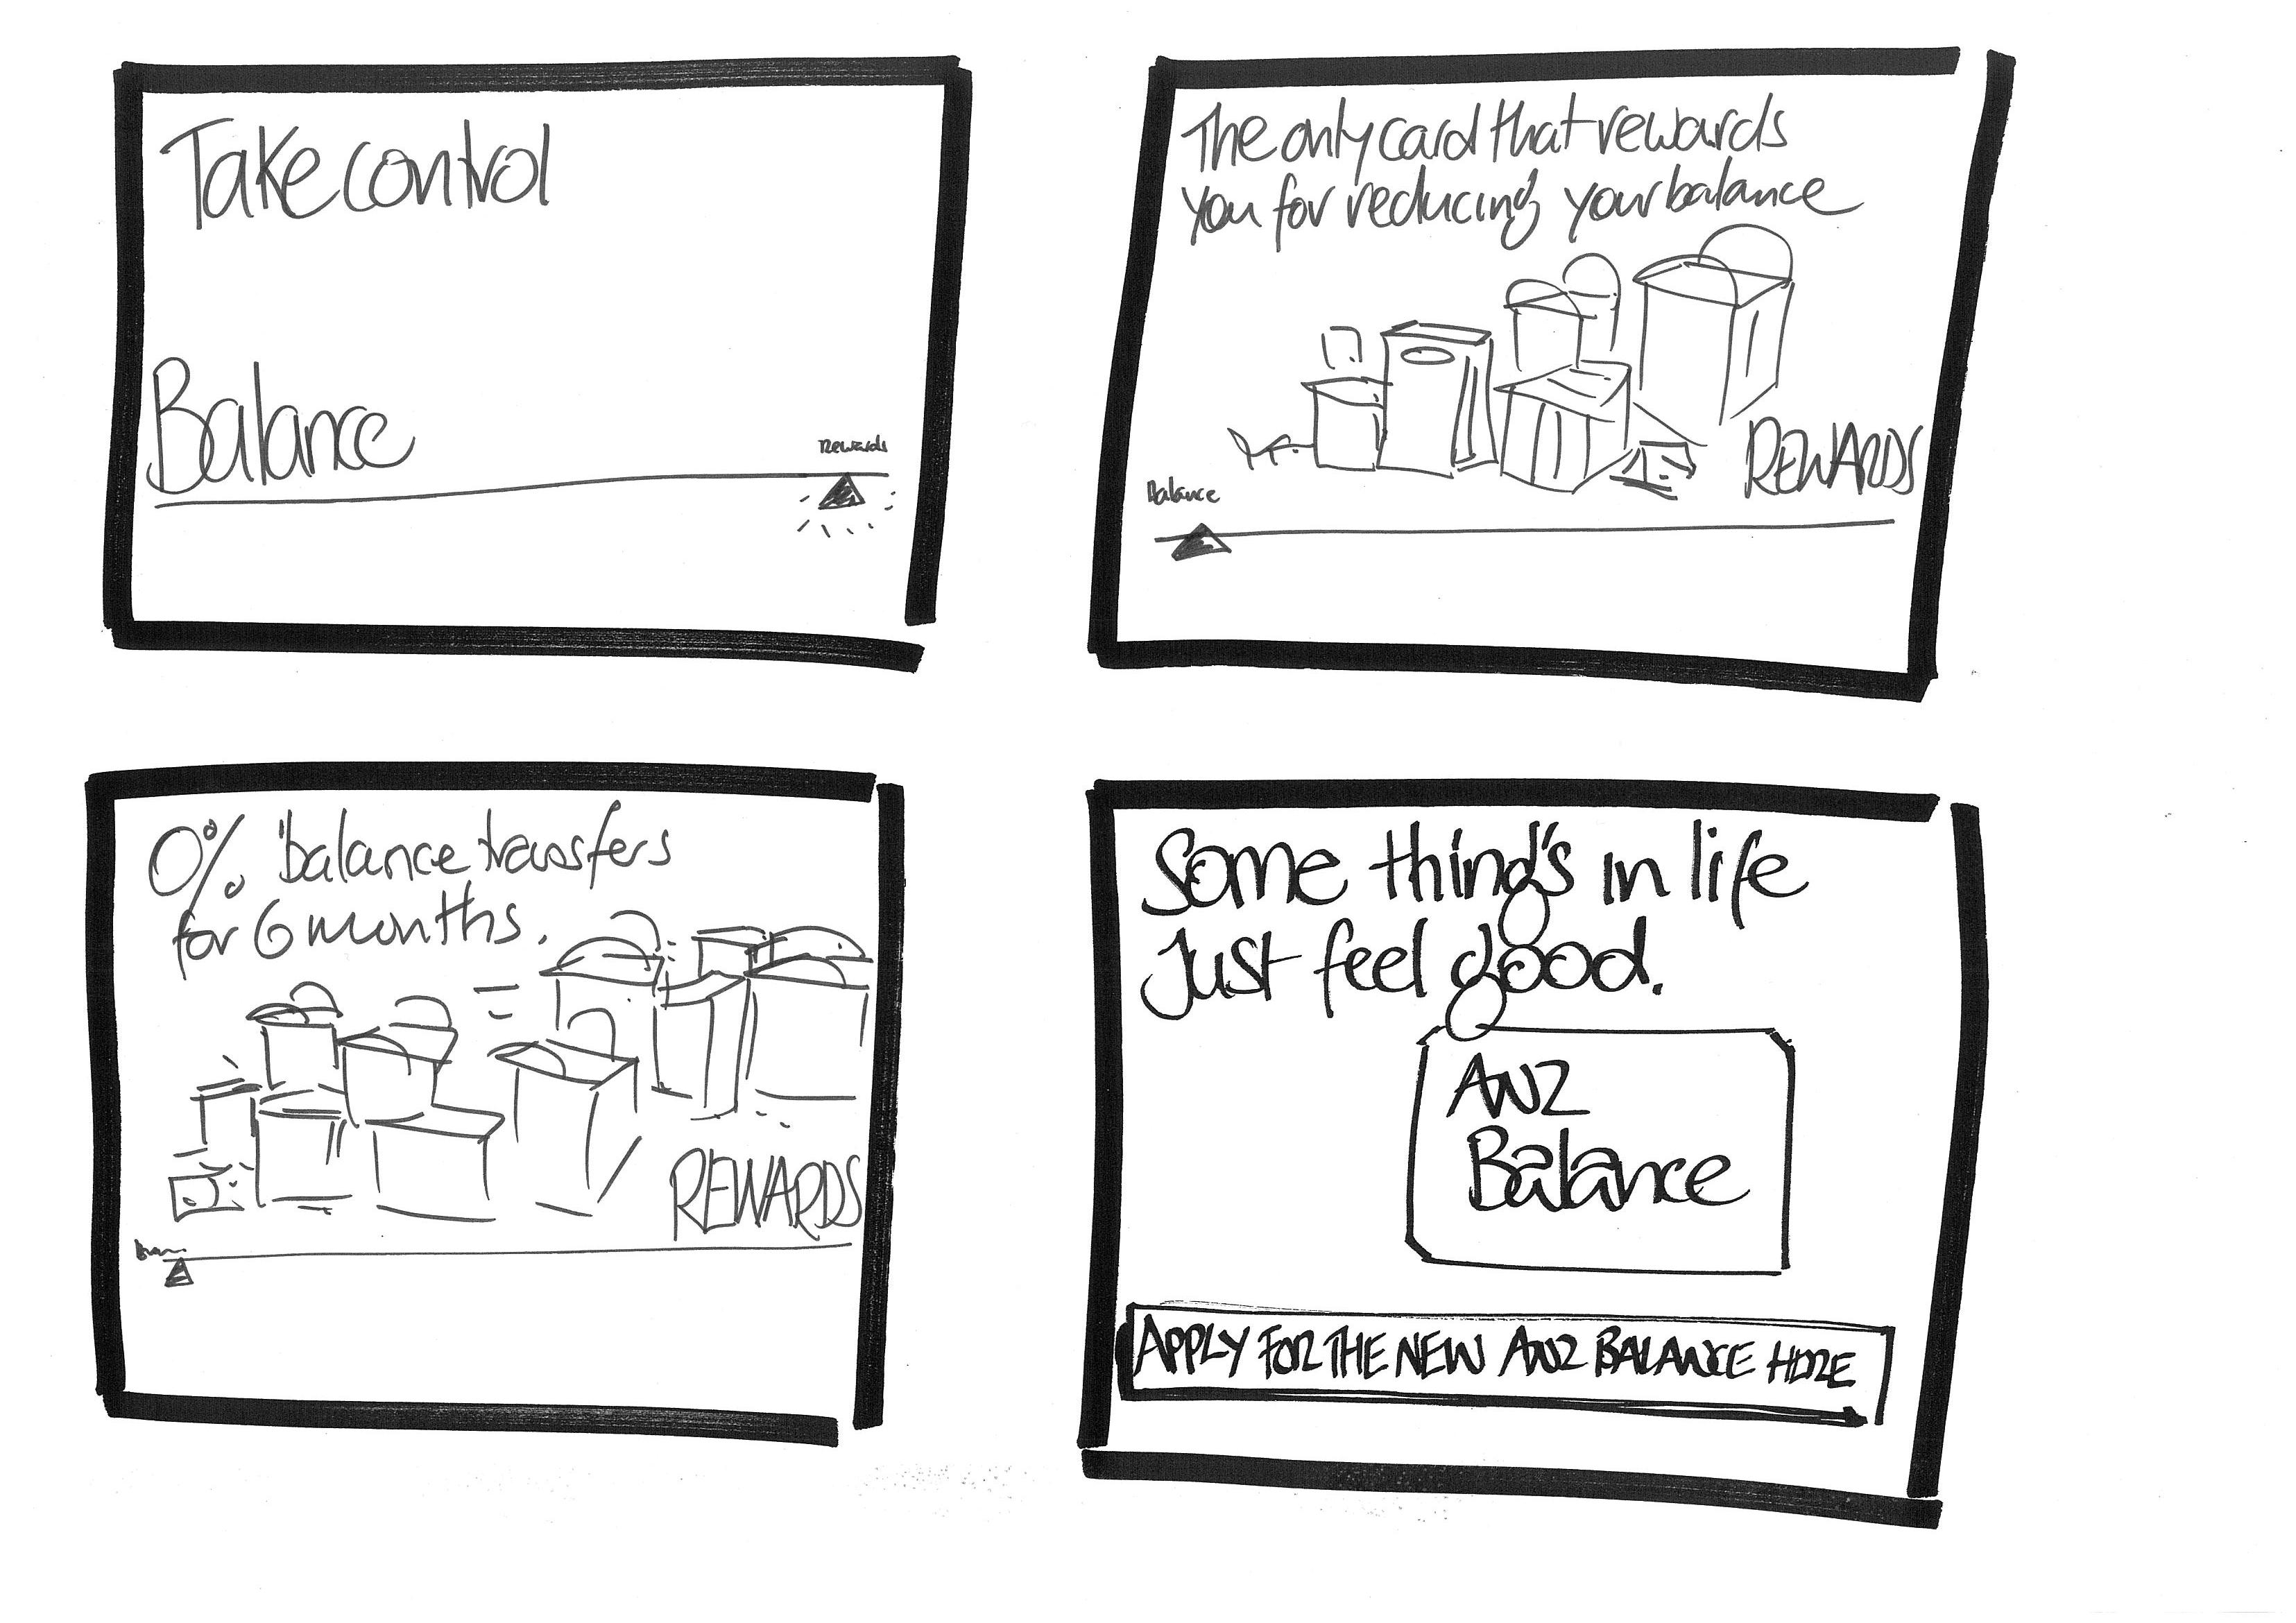 Take control
Balance
Rewards
The only card that rewards
you for reducing your balance
REWARDS
Balance
0% balance transfers
for 6 months.
REWARDS
Some thing's in life
Just feel good.
ANZ
Balance
APPLY FOR THE NEW ANZ BALANCE HERE